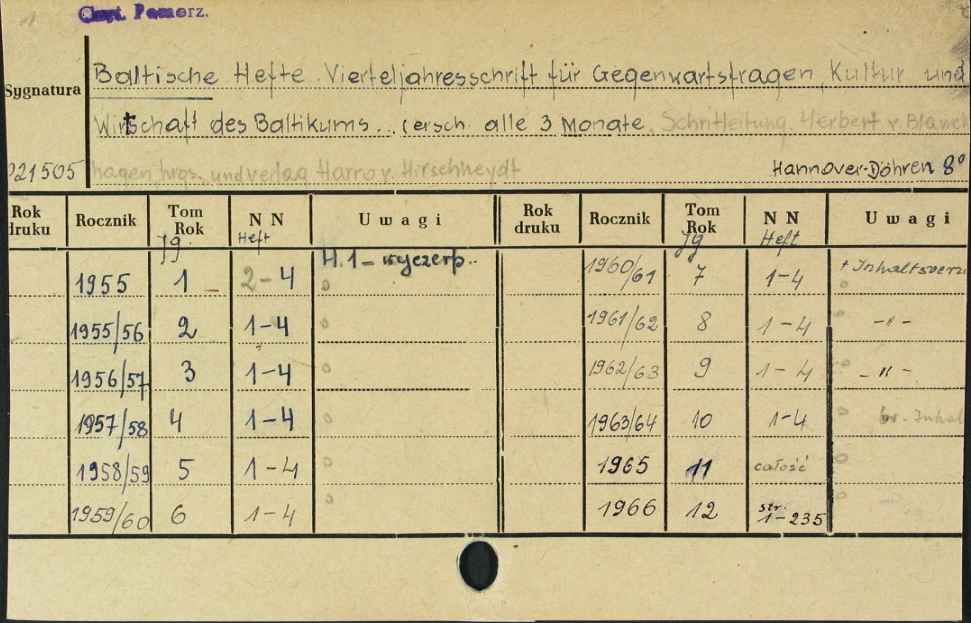 Czyt. Pomorz.
Baltische Hefte. Vierteljahresschrift für Gegenwartsfragen, Kultur und
Sygnatura
Wirtschaft des Baltikums... (ersch. alle 3 Monate. Schriftleitung. Herbert v. Blanck
21505 hagen hrgs. und verlag Harro v. Hirschheydt Hannover-Döhren 8°
Rok druku Rocznik Tom Rok NN Uwagi Rok druku Rocznik Tom Rok NN Uwagi
Jg. Heft Jg Heft
1955 1 2-4 H.1 - wyczerp.. 1960/61 7 1-4 + Inhaltsverz
1955/56 2 1-4 1961/62 8 1-4 -"-
1956/57 3 1-4 1962/63 9 1-4 -"-
1957/58 4 1-4 1963/64 10 1-4 br. Inhal
1958/59 5 1-4 1965 11 całość
1959/60 6 1-4 1966 12 str. 1-235